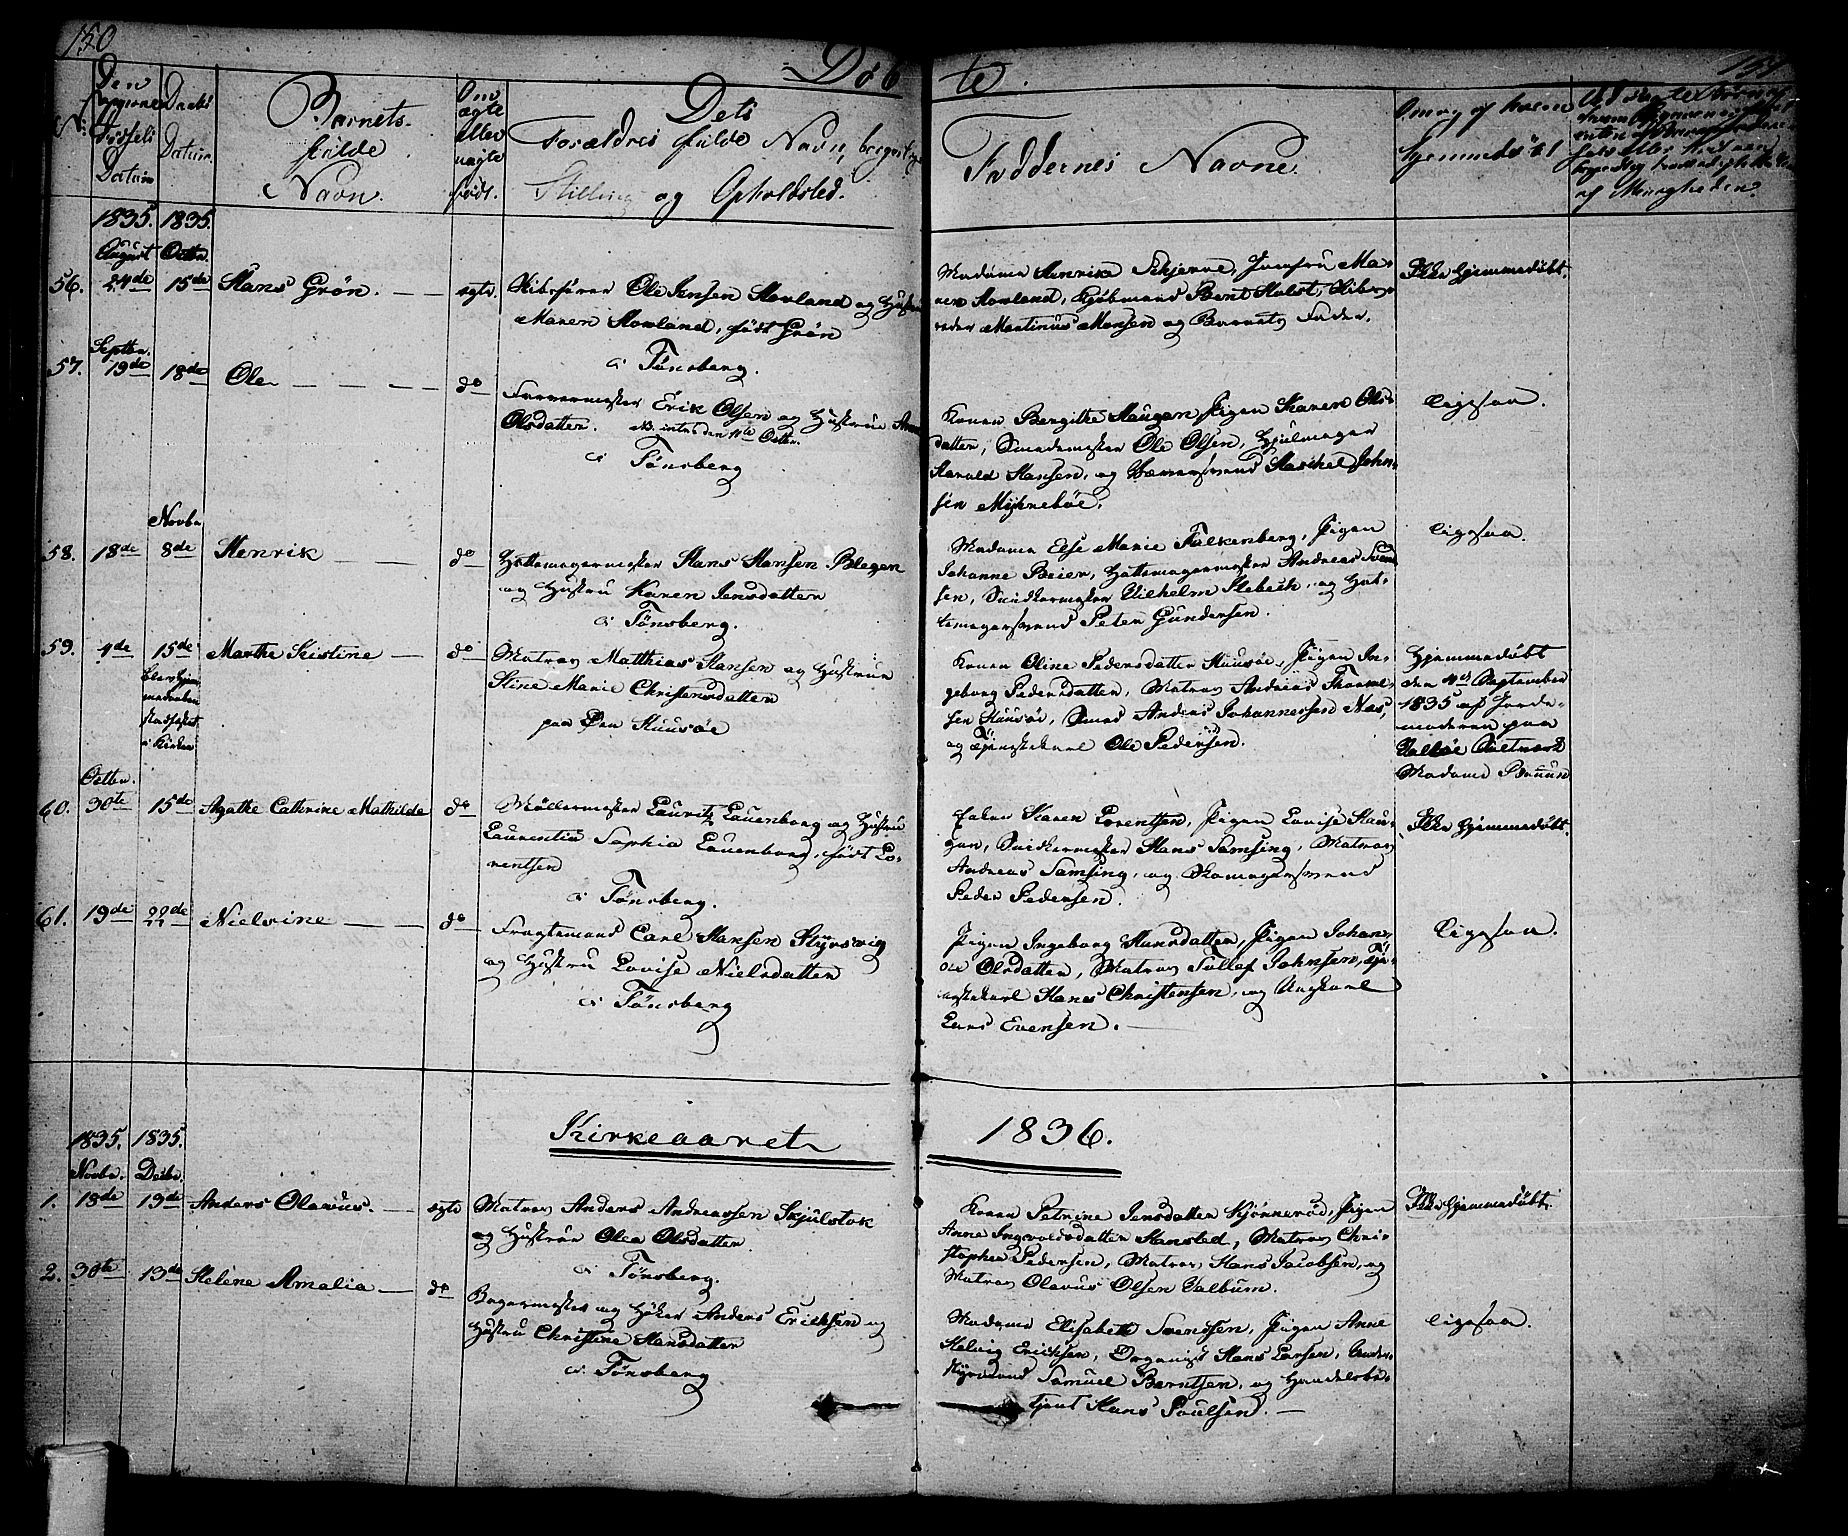 150
Døb
te.
151
No.
Den
Fødsels
Datum
Daabs
Datum.
Barnets
fulde
Navn.
Om
ægte
eller
uægte
født.
Dets
Forældres fulde Navn,
Stilling og Opholdsted.
Faddernes Navne.
Hjemmedøbt
af Menigheden.
1835. 1835.
August Octbr.
56. 24de 15de Hans Grøn. — — ægte. Skibsfører Ole Jensen Hovland og Hustru
Maren Hovland, født Grøn
i Tönsberg.
Madame Henrika Schjerve, Jomfru Ma-
ren Hovland, Kjøbmand Bent Holst, Skibs-
reder Martinus Monsen og Barnets Fader.
Ikke Hjemmedøbt.
Septbr.
57. 19de 18de Ole — — — — do
Farvermester Erik Olsen og Hustrue Anne
Olsdatter. NB. introd. den 11te Octbr.
i Tönsberg
Konen Bergithe Haugen, Pigen Karen Ols-
datter, Smedemester Ole Olsen, Hjulmager
Harald Hansen, og Farversvend Haschel John-
sen Mjknebøe.
Ligesaa.
Novbr
58. 18de 8de Henrik — — do Hattemagermester Hans Hansen Blegen
og Hustru Karen Jensdatter
i Tönsberg.
Madame Else Marie Falkenberg, Pigen
Johanne Beier, Hattemagermester Andreas Svend
sen, Snedkermester Wilhelm Slebech, og Hat-
temagersvend Peter Gundersen.
Ligesaa.
59. 4de 15de Marthe Kistine — do Matros Matthias Hansen og Hustrue
Stine Marie Christensdatter
paa Øen Huusøe
blev Hjem-
medaaben
stadfæstet
i Kirken
Konen Oline Pedersdatter Huusøe, Pigen In-
geborg Pedersdatter, Matros Andreas Thorme-
sen Huusøe, Smed Anders Johannessen Næs,
og Tjenestekarl Ole Pedersen.
Hjemmedøbt
den 4de September
1835 af Jorde-
moderen paa
Valløe Saltværk
Madame Bruun
Octbr.
60. 30te 15de Agathe Cathrine Mathilde do Møllermester Lauritz Lauenborg og Hustru
Laurentia Sophia Lauenborg, født Lo-
rentsen
i Tönsberg.
Enken Karen Lorentsen, Pigen Lovise Hau-
gen, Snedkermester Hans Samsing, Matros
Andreas Samsing, og Skomagersvend
Peder Pedersen.
Ikke Hjemmedøbt.
61. 19de 22de Nielsine — — do Fragtemand Carl Hansen Styrsvig
og Hustru Lovise Nielsdatter
i Tönsberg
Pigen Ingeborg Hansdatter, Pigen Johan-
ne Olsdatter, Matros Tollef Johnsen, Tje-
nestekarl Hans Christensen, og Ungkarl
Lars Evensen. —
Ligesaa.
Kirkeaaret 1836.
1835. 1835.
Novbr. Decbr.
1. 18de 19de Anders Olavus. — ægte Matros Anders Andreassen Skjulstok
og Hustrue Olea Olsdatter
i Tönsberg.
Konen Petrine Jensdatter Kjønnerød, Pigen
Anne Ingvoldsdatter Hansted, Matros Chri-
stopher Pedersen, Matros Hans Jacobsen, og
Matros Olavus Olsen Valbum.
Ikke Hjemmedøbt.
2. 30te 13de Helene Amalia — do Bagermester og Høker Anders Ericksen og
Hustru Christine Hansdatter
i Tönsberg
Madame Elisabeth Svendsen, Pigen Anne
Helvig Ericksen, Organist Hans Larsen,
Samuel Berntsen, og Handelsbe-
tjent Hans Poulsen. —
Ligesaa.